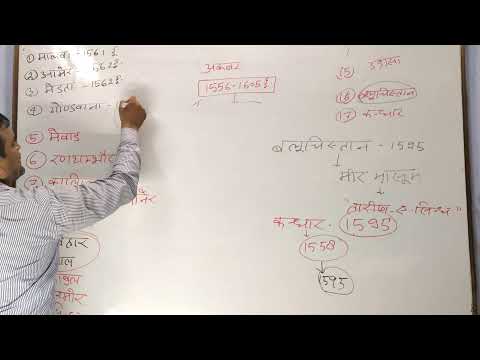 ① मालवा - 1561 ई.
② आमेर - 1562 ई.
③ मेड़ता - 1562 ई.
④ गोण्डवाना -
⑤ मेवाड़
⑥ रणथम्भौर
अकबर
1556-1605 ई
15) उड़ीसा
16) बलूचिस्तान
17) कन्धार
बलूचिस्तान - 1595
मीर मासूम
कन्धार -
1595
1558
1595